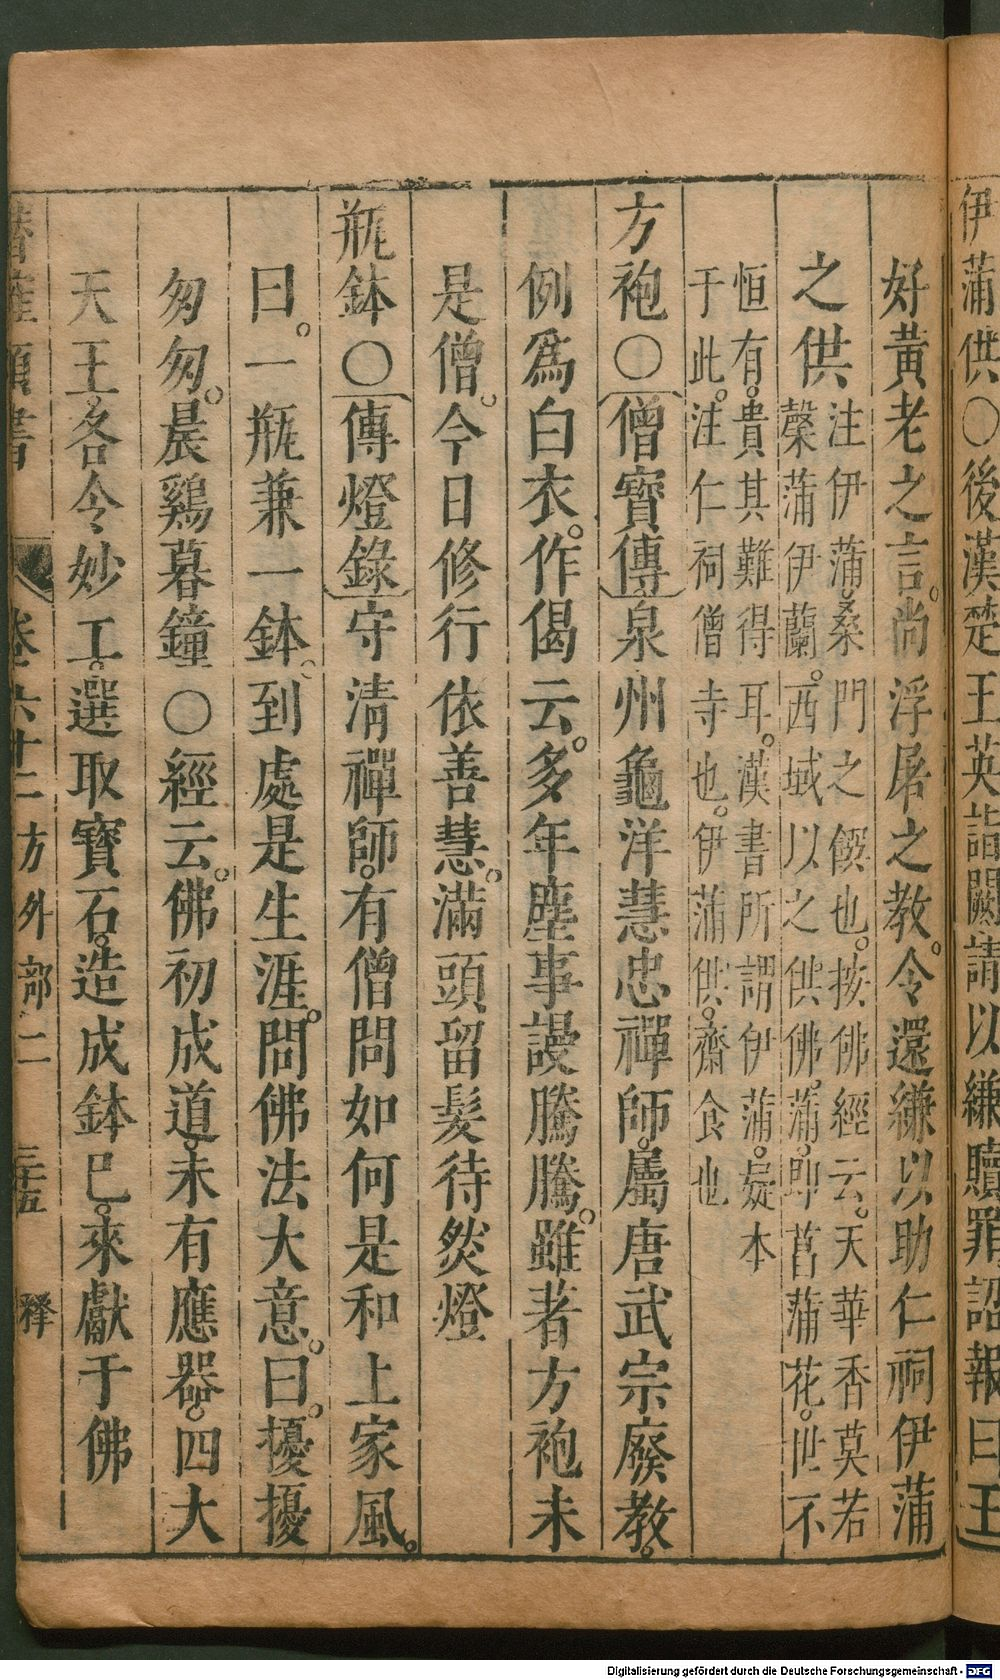 伊蒲供○後漢楚王英詣闕請以縑贖罪詔報曰王
好黃老之言。尚浮屠之教。令還縑以助仁祠伊蒲
之供
注伊蒲。桑門之饌也。按佛經云。天華香莫若
檗蒲伊蘭。西域以之供佛。蒲。即菖蒲花。世不
恒有。貴其難得耳。漢書所謂伊蒲。疑本
于此。注仁祠僧寺也。伊蒲供。齋食也
方袍○僧寶傳泉州龜洋慧忠禪師。屬唐武宗廢教。
例爲白衣。作偈云。多年塵事謾騰騰。雖著方袍未
是僧。今日修行依善慧。滿頭留髮待然燈
瓶鉢○傳燈錄守清禪師。有僧問如何是和上家風。
曰。一瓶兼一鉢。到處是生涯。問佛法大意。曰。擾擾
匆匆。晨鷄暮鐘○經云。佛初成道。未有應器。四大
天王。各令妙工。選取寶石。造成鉢已。來獻于佛
潛確類書 卷六十二 方外部二 三十五 釋
Digitalisierung gefördert durch die Deutsche Forschungsgemeinschaft - DFG